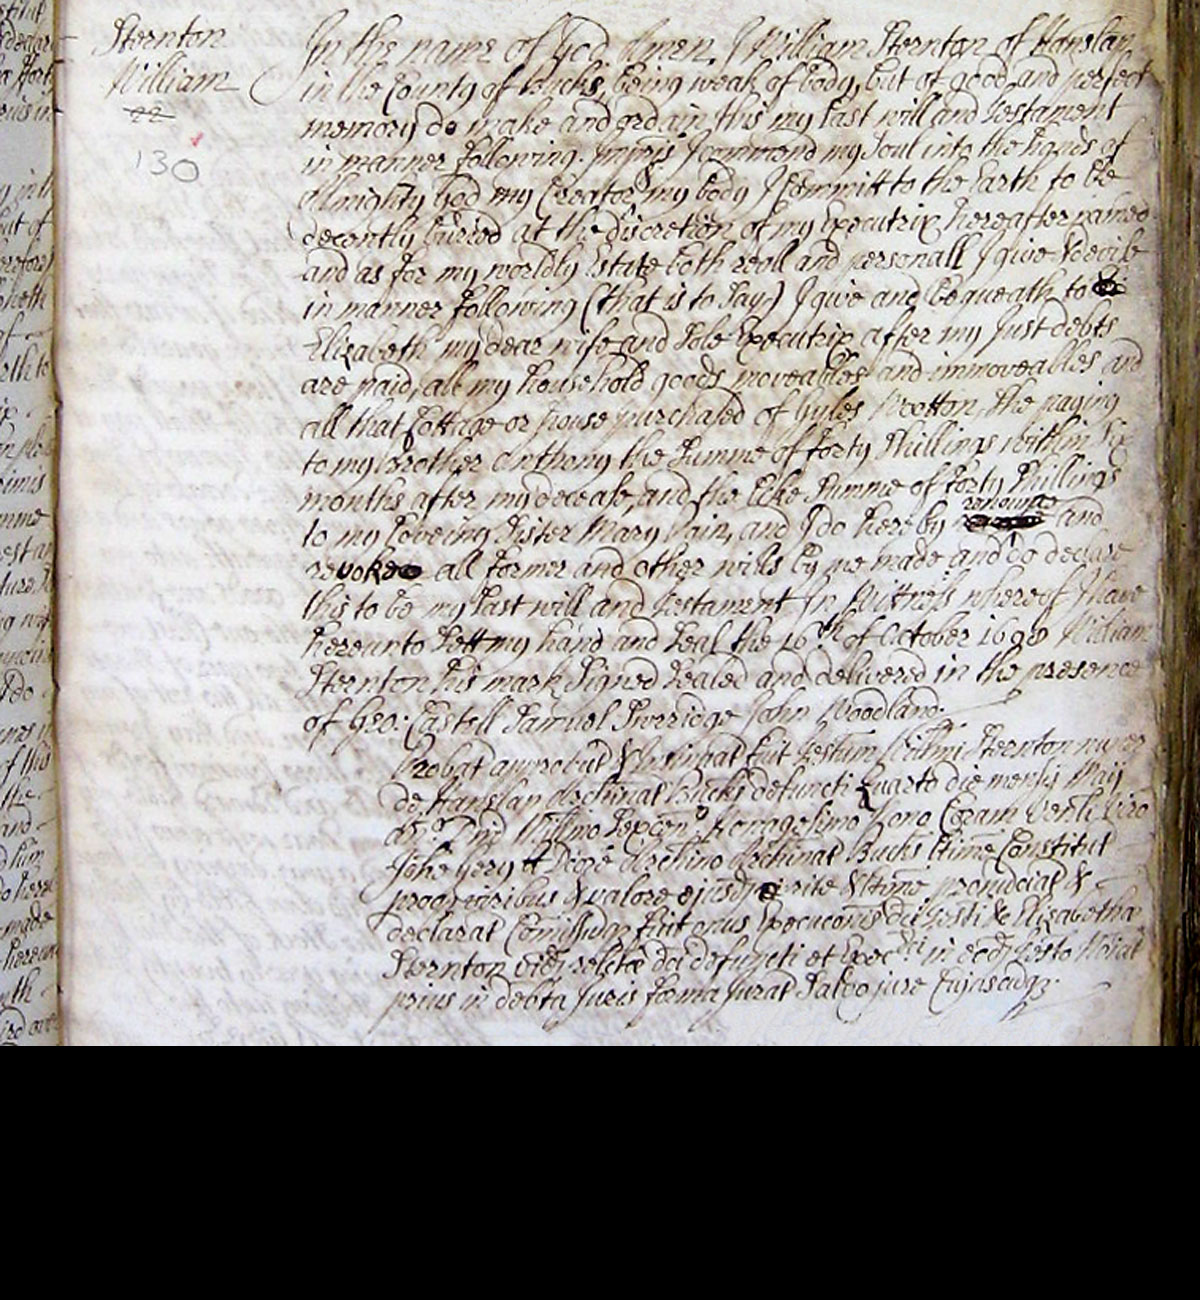 Sternton
William
22
130
In the name of God Amen. I William Sternton of Hanslap
in the County of Bucks, being weak of body, but of good and perfect
memory do make and ordain this my last will and testament
in manner following. Impris I commend my Soul into the hands of
Almighty God my Creator, my body I committ to the Earth to be
decently buried at the discretion of my Executrix hereafter named
and as for my worldly Estate both reall and personall I give & devise
in manner following (that is to say) I give and bequeath to
Elizabeth my dear wife and sole Executrix after my just debts
are paid, all my household goods moveables and immoveables and
all that Cottage or house purchased of Gyles Wootton, she paying
to my brother Anthony the Summe of forty Shillings within six
months after my decease, and the like Summe of forty Shillings
to my loveing Sister Mary Pain, and I do hereby renounce and
revoke all former and other wills by me made and do declare
this to be my last will and testament In Wittness whereof I have
hereunto sett my hand and seal the 16th of October 1698 William
Sternton his mark Signed Sealed and delivered in the presence
of Geo: Castell Samuel Sverridge John Woodland.
Probat approbat & fuit Sternton nuper
de Hanslap Archinat Bucks defuncti Quarto die mensis Maij
Ano Dni Millimo Sexcen Nonagesimo Nono Coram venli viro
Archino Archinat Bucks ltime Constitut
& valore ejusd & ltime &
declarat Comissumq fuit onus Execuconis dci Testi Elizabetha
Sternton vid relcte dci defuncti et Exec dci in eod Testo Noiat
prius in debta Juris forma Jurat Salvo jure Cujuscunq